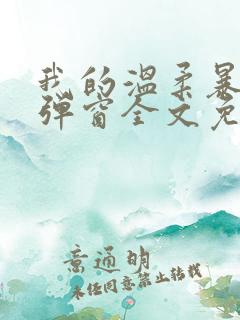 我的温柔暴
弹窗全文免
意通明
未经同意禁止转载